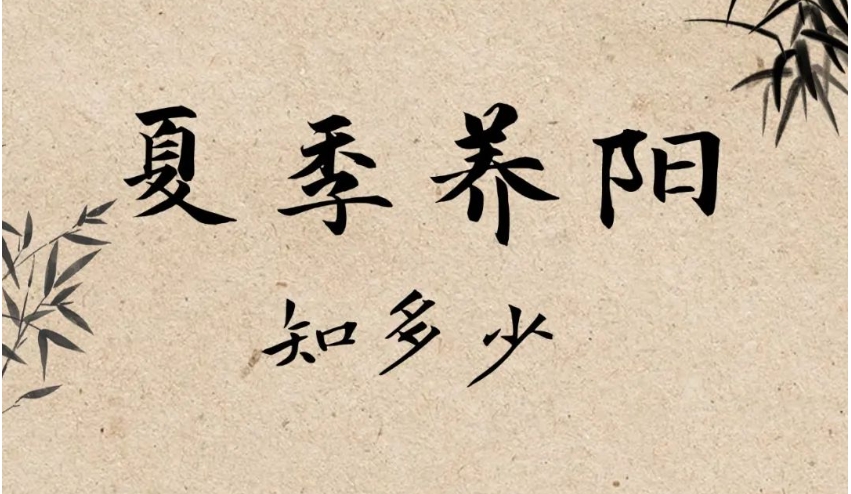 夏季养阳
知多少